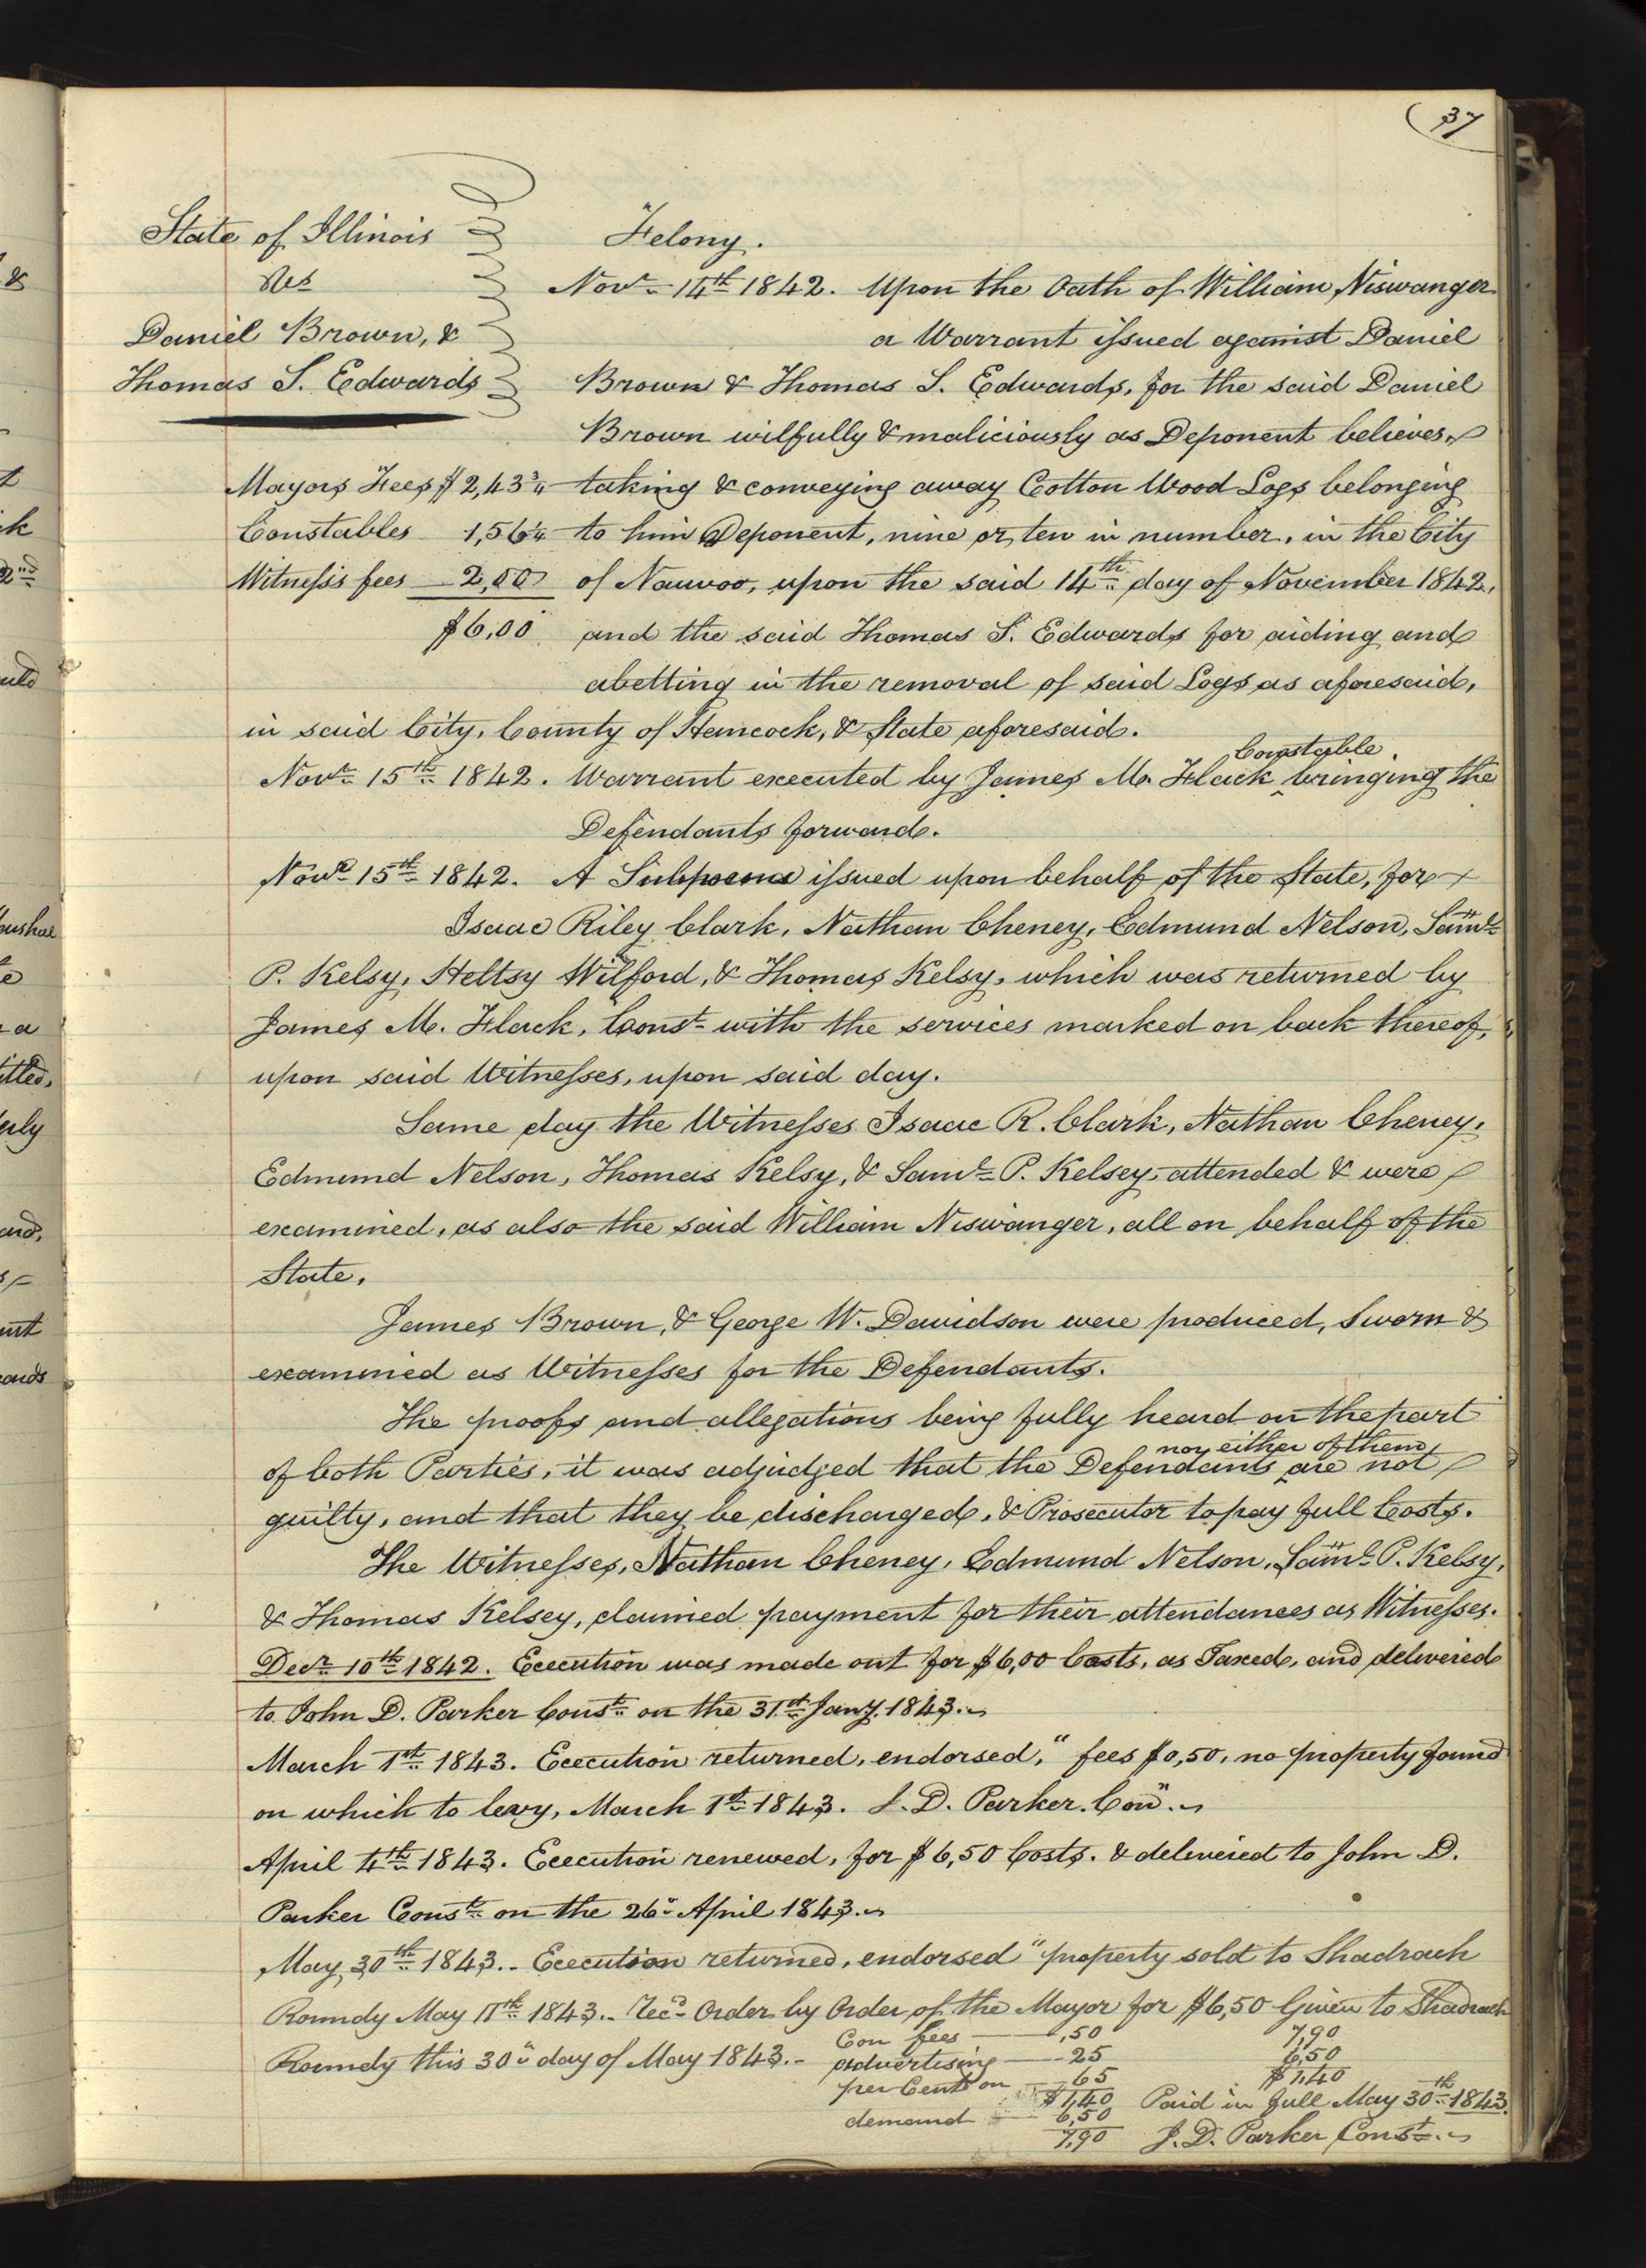 37
State of Illinois
vs
Daniel Brown, &
Thomas S. Edwards
Mayors Fees $ 2,43¾
Constables 1,56¼
Witness's fees 2,00
$6,00
Felony.
Novr. 14th 1842. Upon the Oath of William Niswanger
a Warrant issued against Daniel
Brown & Thomas S. Edwards, for the said Daniel
Brown wilfully & maliciously as Deponent believes,
taking & conveying away Cotton Wood Logs belonging
to him Deponent, nine or ten in number, in the City
of Nauvoo, upon the said 14th day of November 1842,
and the said Thomas S. Edwards for aiding and
abetting in the removal of said Logs as aforesaid,
in said City, County of Hancock, & State aforesaid.
Constable
Novr. 15th 1842. Warrant executed by James M. Flack ‸ bringing the
Defendants forward.
Novr. 15th 1842. A Subpoena issued upon behalf of the State, for
Isaac Riley Clark, Nathan Cheney, Edmund Nelson, Saml.
P. Kelsy, Heltsy Wilford, & Thomas Kelsy, which was returned by
James M. Flack, Const. with the services marked on back thereof,
upon said Witnesses, upon said day.
Same day the Witnesses Isaac R. Clark, Nathan Cheney,
Edmund Nelson, Thomas Kelsy, & Saml. P. Kelsey, attended & were
examined, as also the said William Niswanger, all on behalf of the
State.
James Brown, & George W. Davidson were produced, Sworn &
examined as Witnesses for the Defendants.
The proofs and allegations being fully heard on the part
nor either of them
of both Parties, it was adjudged that the Defendants ‸ are not
guilty, and that they be discharged, & Prosecutor to pay full Costs.
The Witnesses, Nathan Cheney, Edmund Nelson, Saml. P. Kelsy,
& Thomas Kelsey, claimed payment for their attendances as Witnesses.
Decr. 10th 1842. Execution was made out for $6,00 Costs, as Taxed, and delivered
to John D. Parker Const. on the 31st Jany. 1843.
March 1st 1843. Execution returned, endorsed, "fees $0,50, no property found
on which to levy, March 1st 1843. J. D. Parker. Con".
April 4th 1843. Execution renewed, for $6,50 Costs. & delivered to John D.
Parker Const. on the 26" April 1843.
May 30th 1843. Execution returned, endorsed "property sold to Shadrach
Roundy May 11th 1843. Recd. Order by Order of the Mayor for $6,50 Given to Shadrach
Roundy this 30" day of May 1843.
Con fees ,50
advertising 25
per Cent on 65
$1,40
demand 6,50
7,90
7,90
6,50
$1,40
Paid in full May 30th 1843.
J. D. Parker Const.